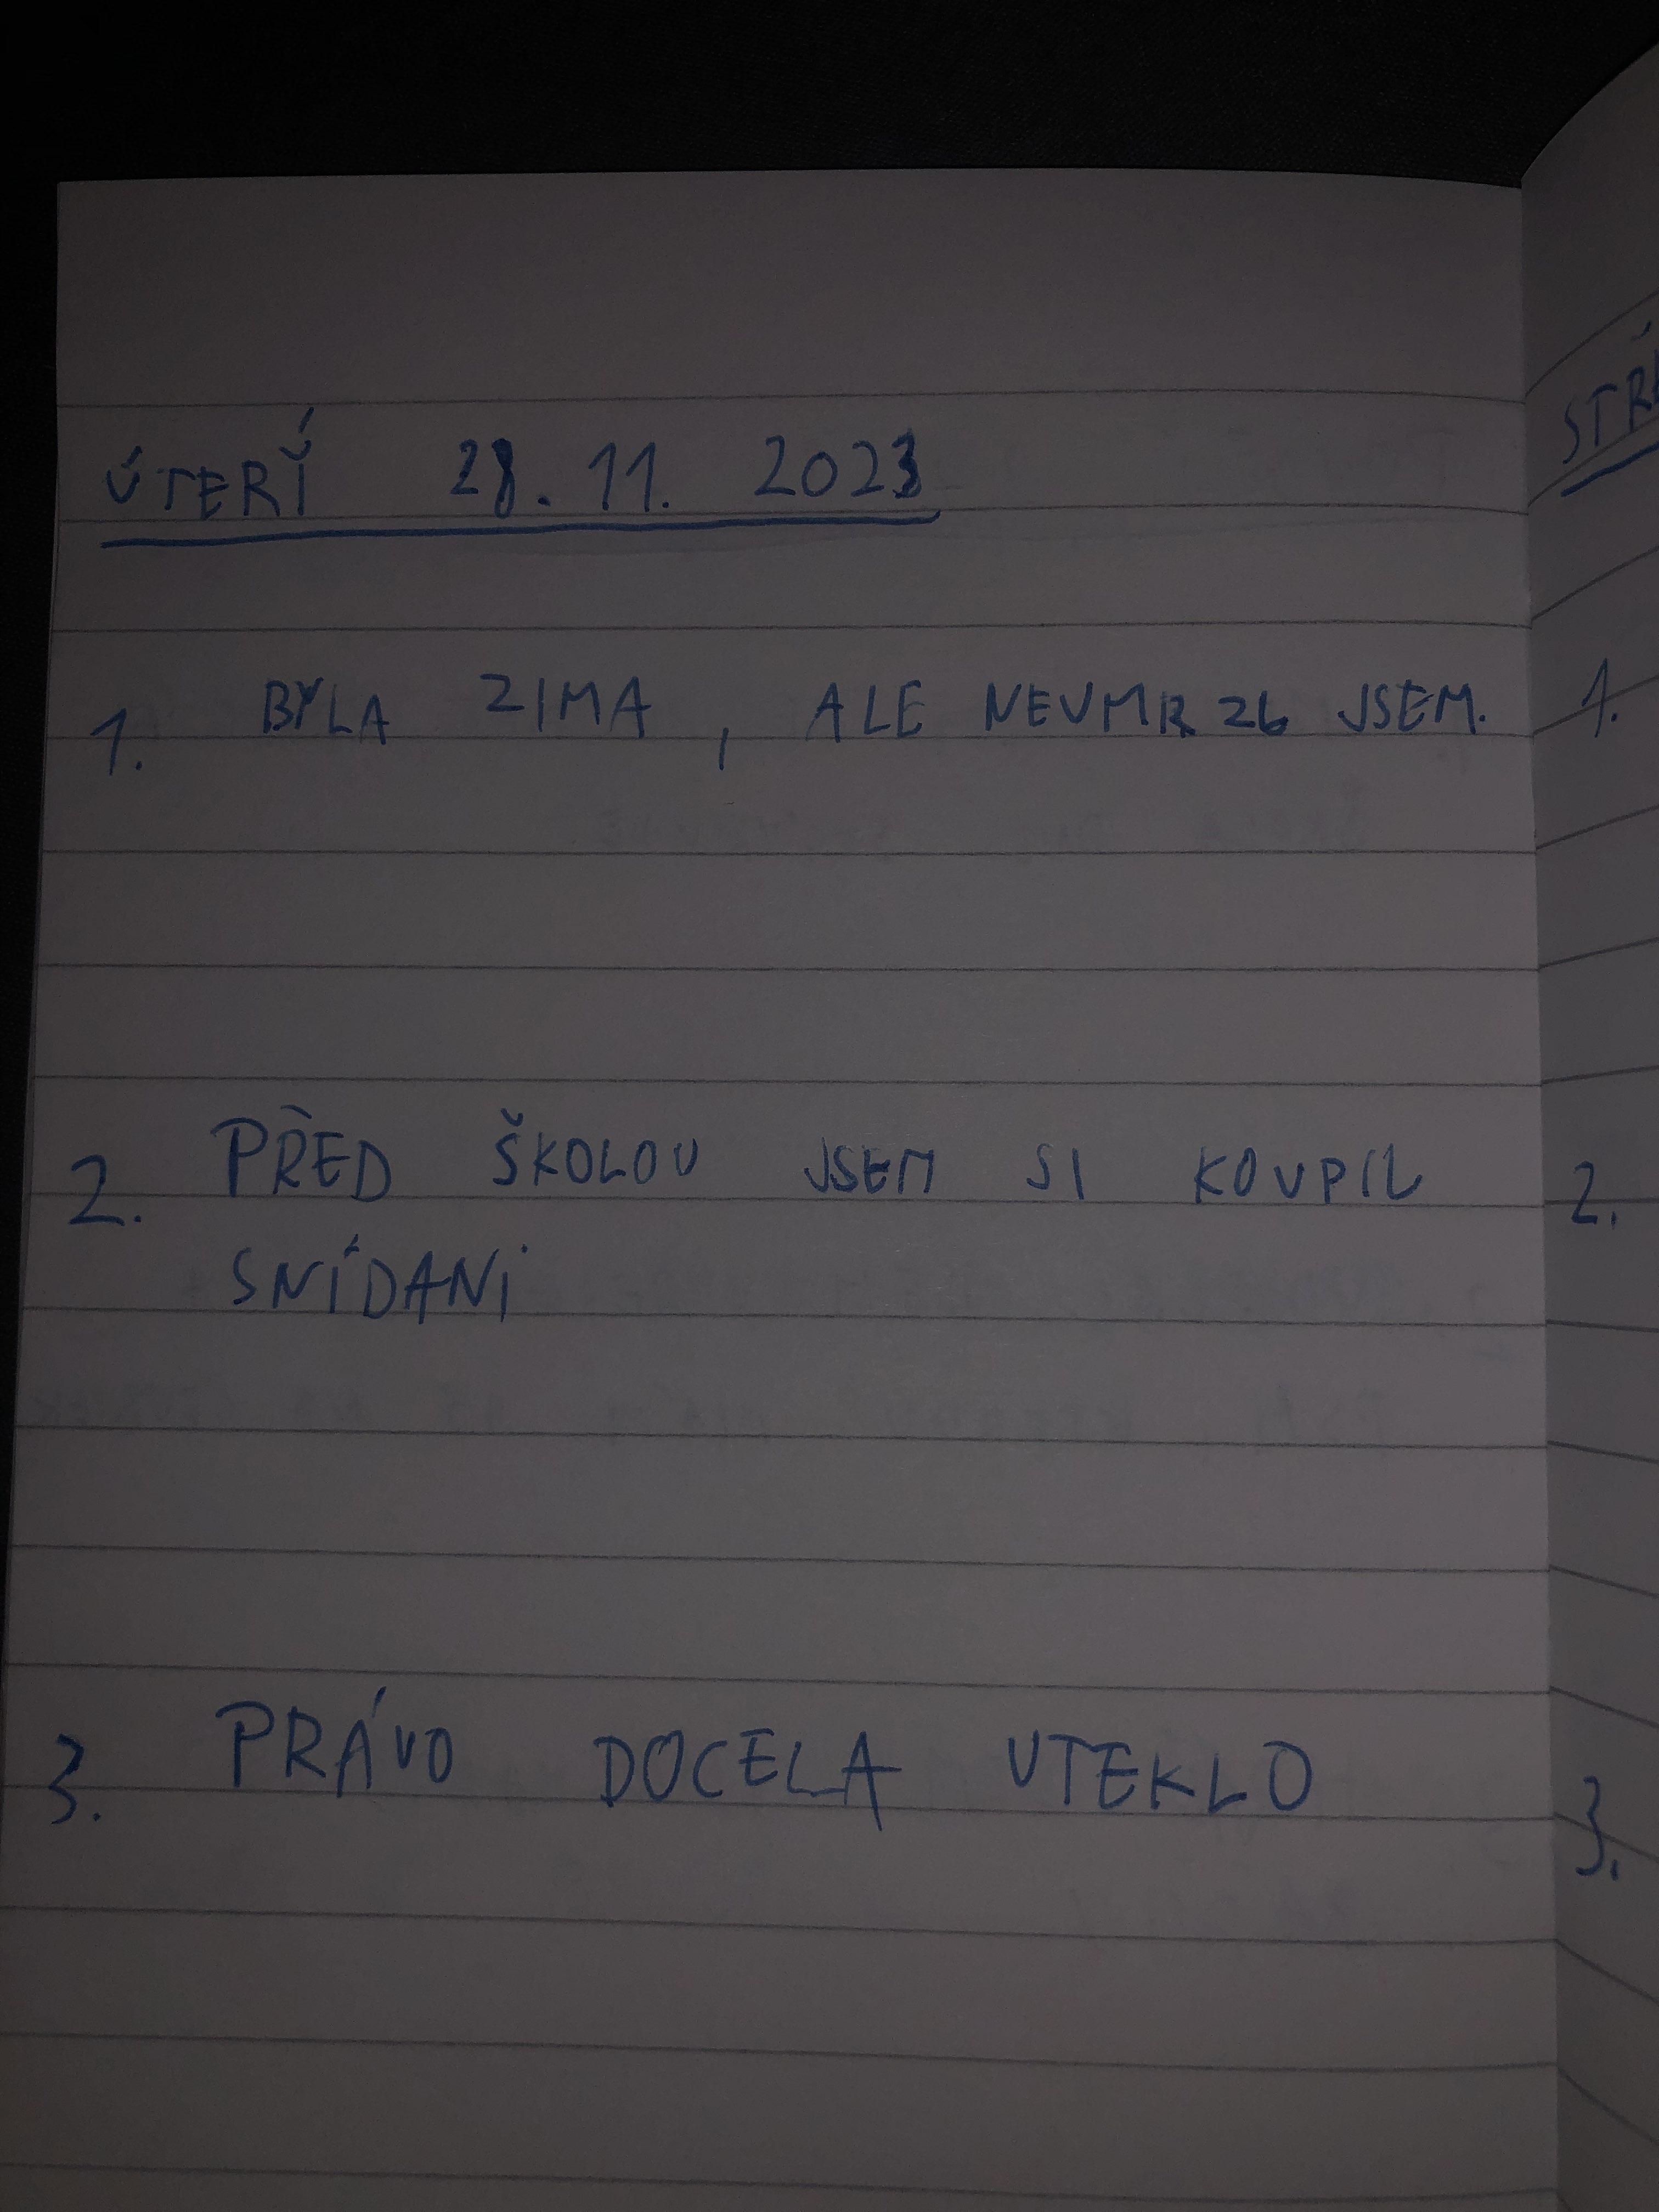 ÚTERÝ 28. 11. 2023
1. BYLA ZIMA, ALE NEUMRZL JSEM.
2. PŘED ŠKOLOU JSEM SI KOUPIL
SNÍDANI
3. PRÁVO DOCELA UTEKLO
1.
2.
3.